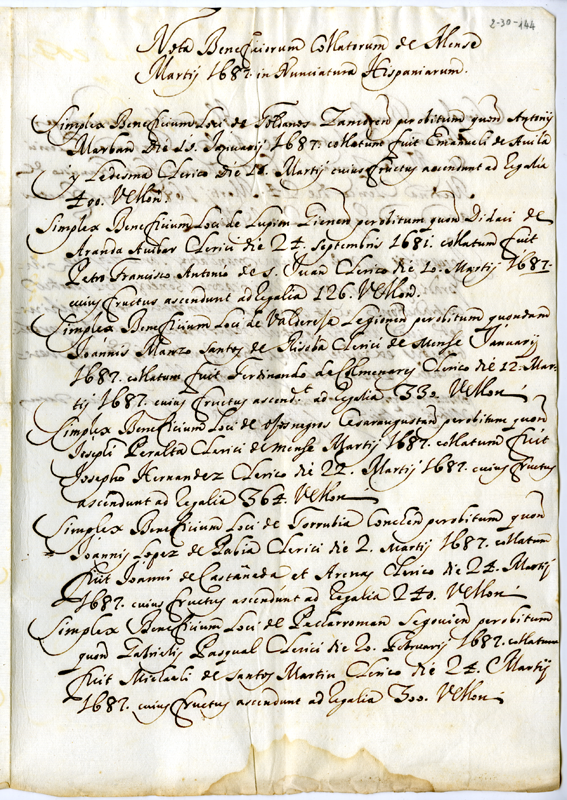 2-30-144
Nota Beneficiorum Collatorum de Mense
Martij 1687. in Nunciatura Hispaniarum.
Simplex Beneficium Loci de Toldanos Zamoren perobitum quon Antonij
Marban die 15. Januarij 1687. collatum fuit Emanueli de Auila
y Ledesma Clerico die Martij cuius fructus ascendunt ad Regalia
400. Vellon.
Simplex Beneficium Loci de Lupion Gienen perobitum quon Didaci de
Aranda Clerici die 24. Septembris 1681. collatum fuit
Petro Francisco Antonio de S. Juan Clerico die 10. Martij 1687.
cuius fructus ascendunt ad Regalia 126. Vellon.
Simplex Beneficium Loci de Legionen perobitum quondam
Joannis Manzo Santos de Clerici de Mense Januarij
1687. collatum fuit Ferdinando de Colmenares Clerico die 12. Mar-
tij 1687. cuius fructus ascendt ad Regalia 330. Vellon
Simplex Beneficium Loci de Ojosnegros Cesaraugustan perobitum quon
Joseph Peralta Clerici de mense Martij 1687. collatum fuit
Josepho Hernandez Clerico die 22. Martij 1687. cuius fructus
ascendunt ad Regalia 364. Vellon
Simplex Beneficium Loci de Torrubia Conchen perobitum quon
Joannis Lopez de Clerici die 2. Martij 1687. collatum
fuit Joanni de Castañeda et Arenas Clerico die 24. Martij
1687. cuius fructus ascendunt ad Regalia 240. Vellon
Simplex Beneficium Loci de Segouien perobitum
quon Gabrielis Pasqual Clerici die 20. Februarij 1687. collatum
fuit Michaeli de Santos Martin Clerico die 24. Martij
1687. cuius fructus ascendunt ad Regalia 300. Vellon